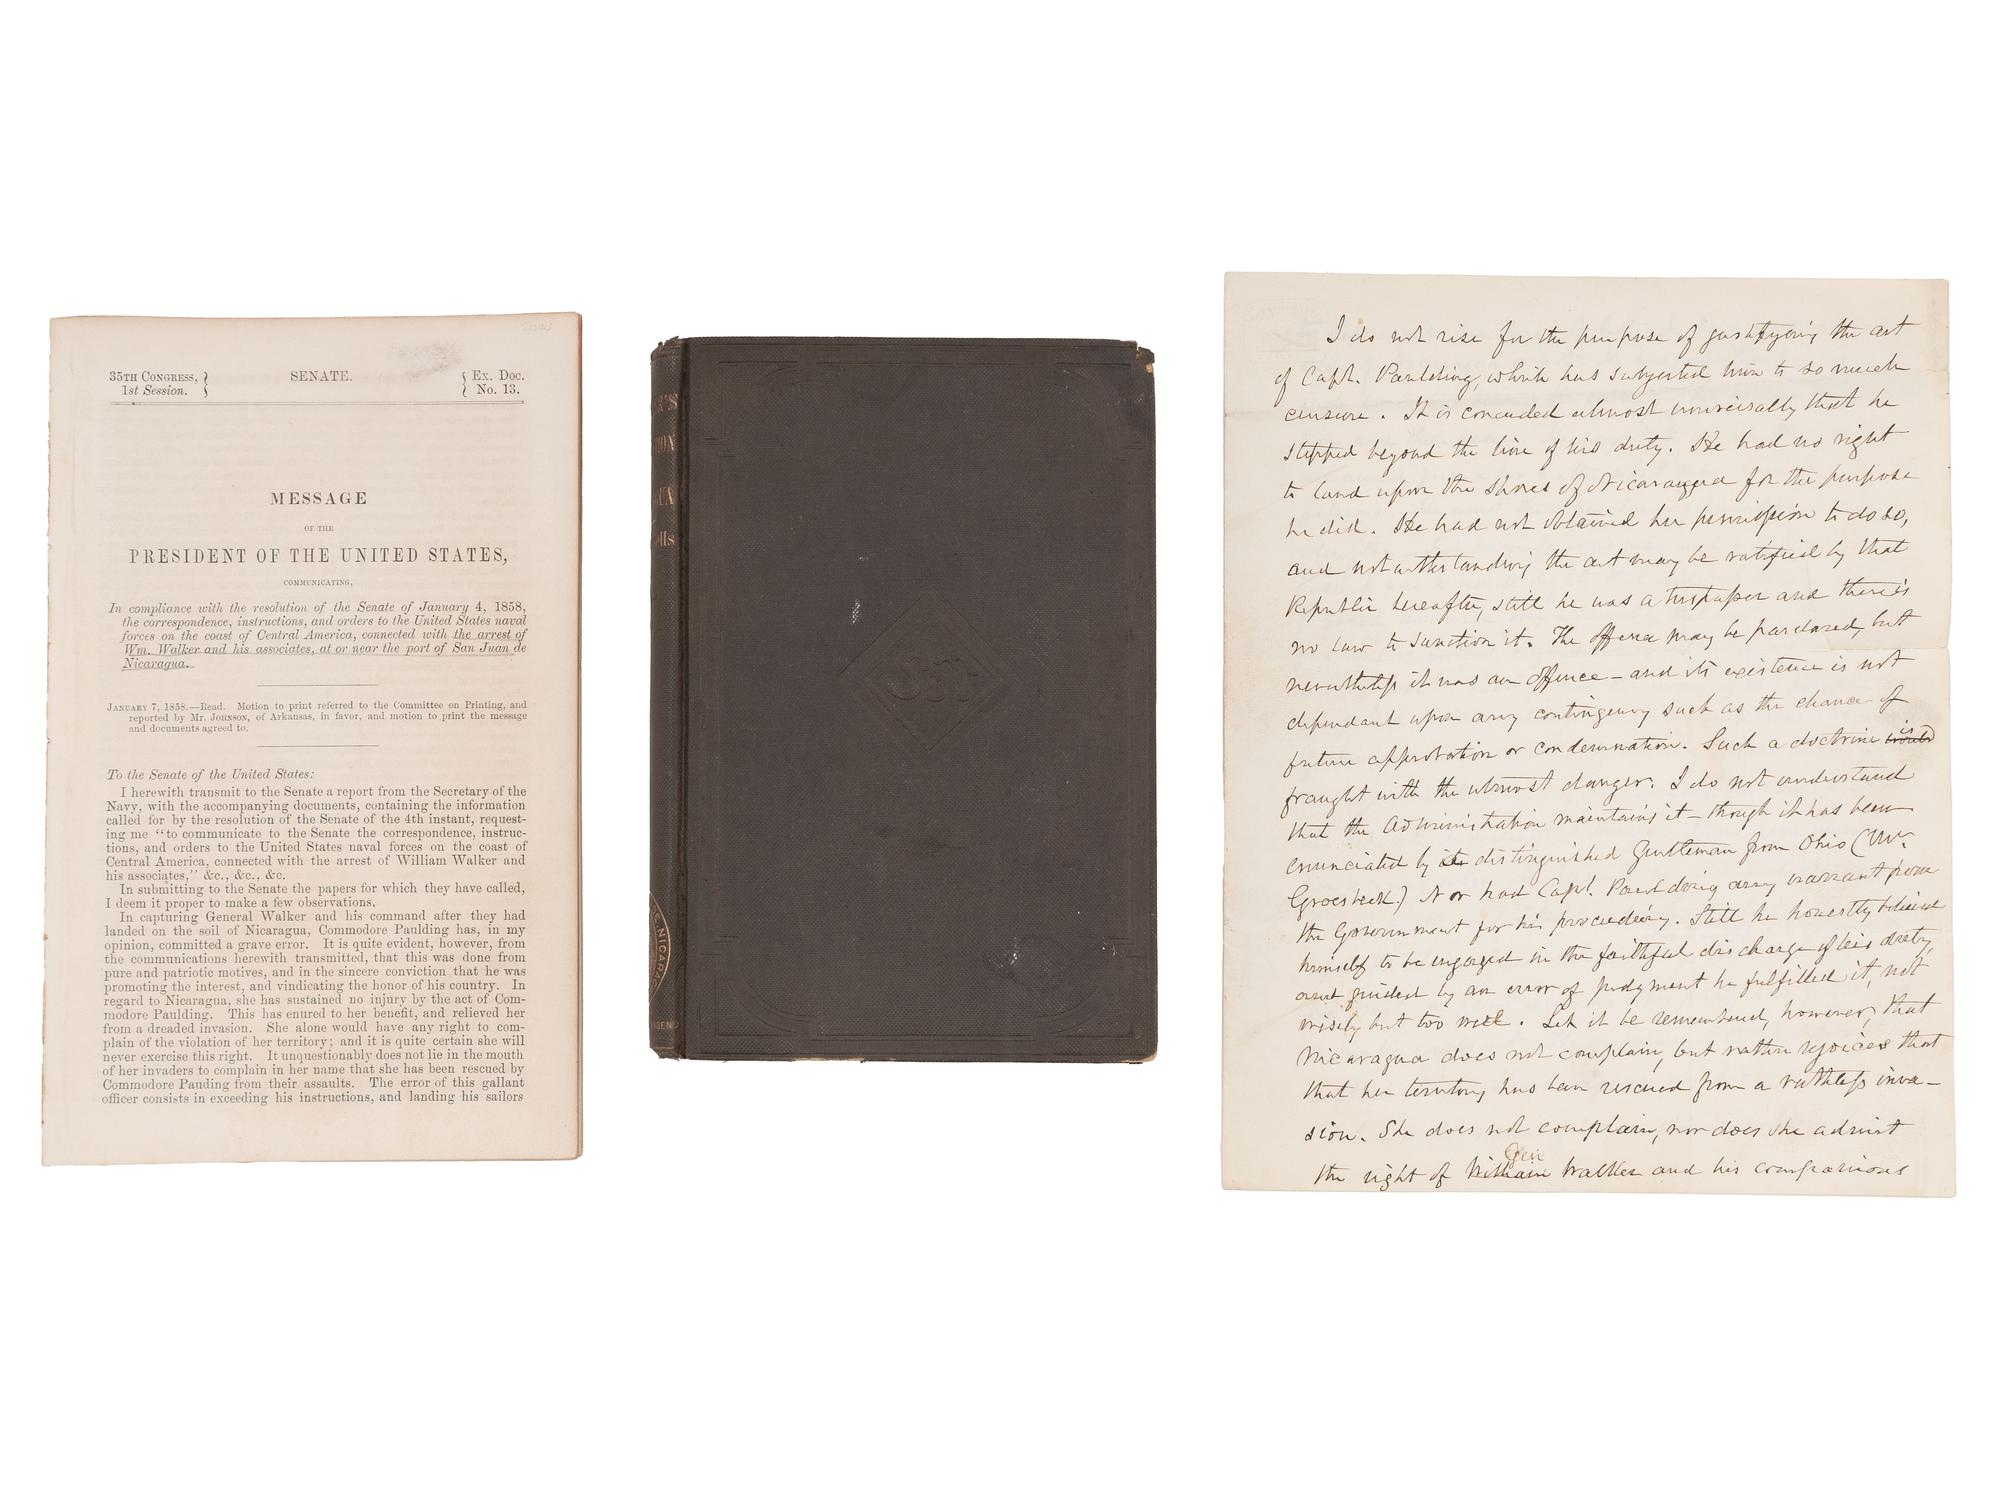 35TH CONGRESS,
1st Session.
SENATE.
EX. DOC.
No. 13.
MESSAGE
OF THE
PRESIDENT OF THE UNITED STATES,
COMMUNICATING,
In compliance with the resolution of the Senate of January 4, 1858,
the correspondence, instructions, and orders to the United States naval
forces on the coast of Central America, connected with the arrest of
Wm. Walker and his associates, at or near the port of San Juan de
Nicaragua.
JANUARY 7, 1858.—Read. Motion to print referred to the Committee on Printing, and
reported by Mr. JOHNSON, of Arkansas, in favor, and motion to print the message
and documents agreed to.
To the Senate of the United States:
I herewith transmit to the Senate a report from the Secretary of the
Navy, with the accompanying documents, containing the information
called for by the resolution of the Senate of the 4th instant, request-
ing me "to communicate to the Senate the correspondence, instruc-
tions, and orders to the United States naval forces on the coast of
Central America, connected with the arrest of William Walker and
his associates," &c., &c., &c.
In submitting to the Senate the papers for which they have called,
I deem it proper to make a few observations.
In capturing General Walker and his command after they had
landed on the soil of Nicaragua, Commodore Paulding has, in my
opinion, committed a grave error. It is quite evident, however, from
the communications herewith transmitted, that this was done from
pure and patriotic motives, and in the sincere conviction that he was
promoting the interest, and vindicating the honor of his country. In
regard to Nicaragua, she has sustained no injury by the act of Com-
modore Paulding. This has enured to her benefit, and relieved her
from a dreaded invasion. She alone would have any right to com-
plain of the violation of her territory; and it is quite certain she will
never exercise this right. It unquestionably does not lie in the mouth
of her invaders to complain in her name that she has been rescued by
Commodore Pauding from their assaults. The error of this gallant
officer consists in exceeding his instructions, and landing his sailors
ER'S
ION
UA
lls
DE NICARAG
I do not rise for the purpose of justifying the act
of Capt. Paulding, which has subjected him to so much
censure. It is conceded almost universally that he
stepped beyond the line of his duty. He had no right
to land upon the shores of Nicaragua for the purpose
he did. He had not obtained her permission to do so,
and notwithstanding the act may be ratified by that
Republic hereafter, still he was a trespasser and there is
no law to sanction it. The offence may be pardoned, but
nevertheless it was an offence - and its existence is not
dependant upon any contingency such as the chance of
future approbation or condemnation. Such a doctrine would is
fraught with the utmost danger. I do not understand
that the Administration maintains it - though it has been
enunciated by its distinguished Gentleman from Ohio (Mr.
Groesbeck.) Nor had Capt. Paulding any warrant from
the Government for his proceeding. Still he honestly believed
himself to be engaged in the faithful discharge of his duty,
and guided by an error of judgment he fulfilled it, not
wisely but too well. Let it be remembered, however, that
Nicaragua does not complain, but rather rejoices that
that her territory has been rescued from a ruthless inva-
sion. She does not complain, nor does she admit
Gen
the right of William Walker and his companions